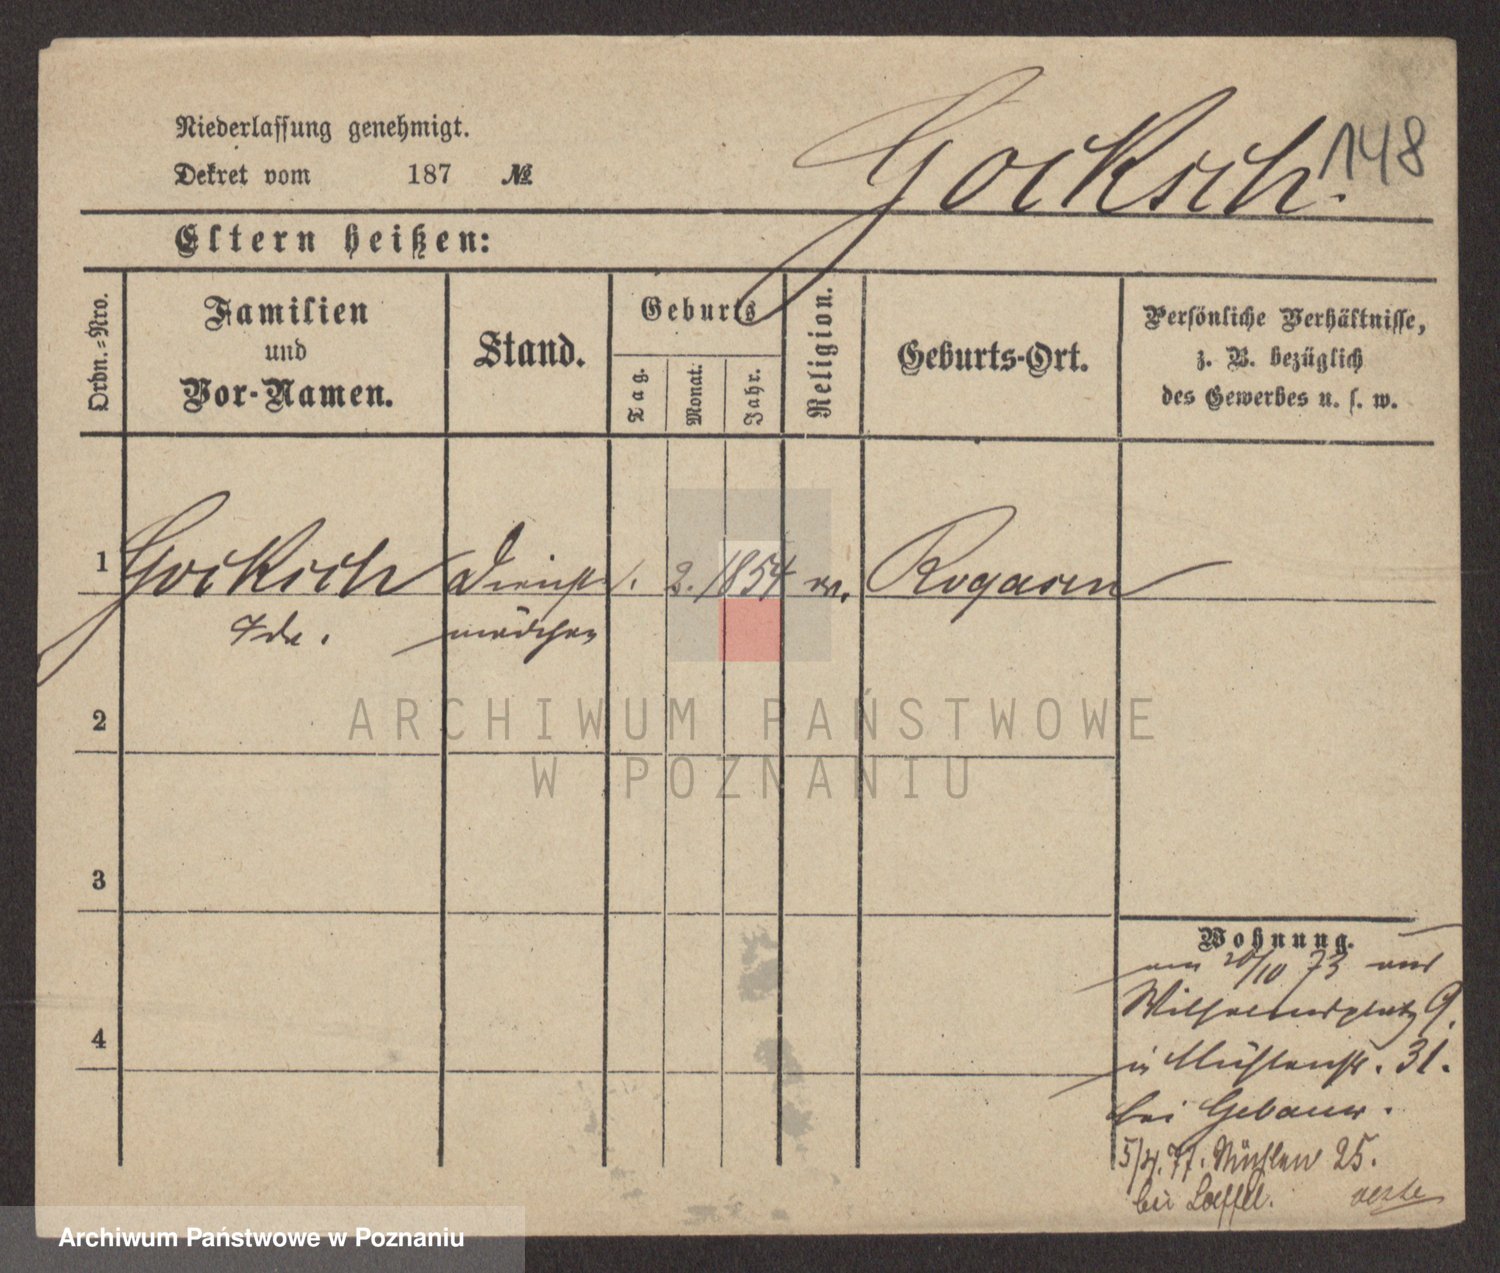 Niederlassung genehmigt.
Dekret vom 187 №
Gocksch. 148
Eltern heißen:
Ordn.=Nro.
Familien
und
Vor-Namen.
Stand.
Geburts
Tag.
Monat.
Jahr.
Religion.
Geburts-Ort.
Persönliche Verhältnisse,
z. B. bezüglich
des Gewerbes u. s. w.
1 Gocksch Dienst 1. 2. 1854 Rogasen
Ida. mädchen
2
3
4
Wohnung.
am 20/10 73 aus
Wilhelmsplatz 9.
in Mühlenstr. 31.
bei Gebauer.
5/4. 77. Mühlen 25.
bei Loeffel.
ARCHIWUM PAŃSTWOWE
W POZNANIU
Archiwum Państwowe w Poznaniu